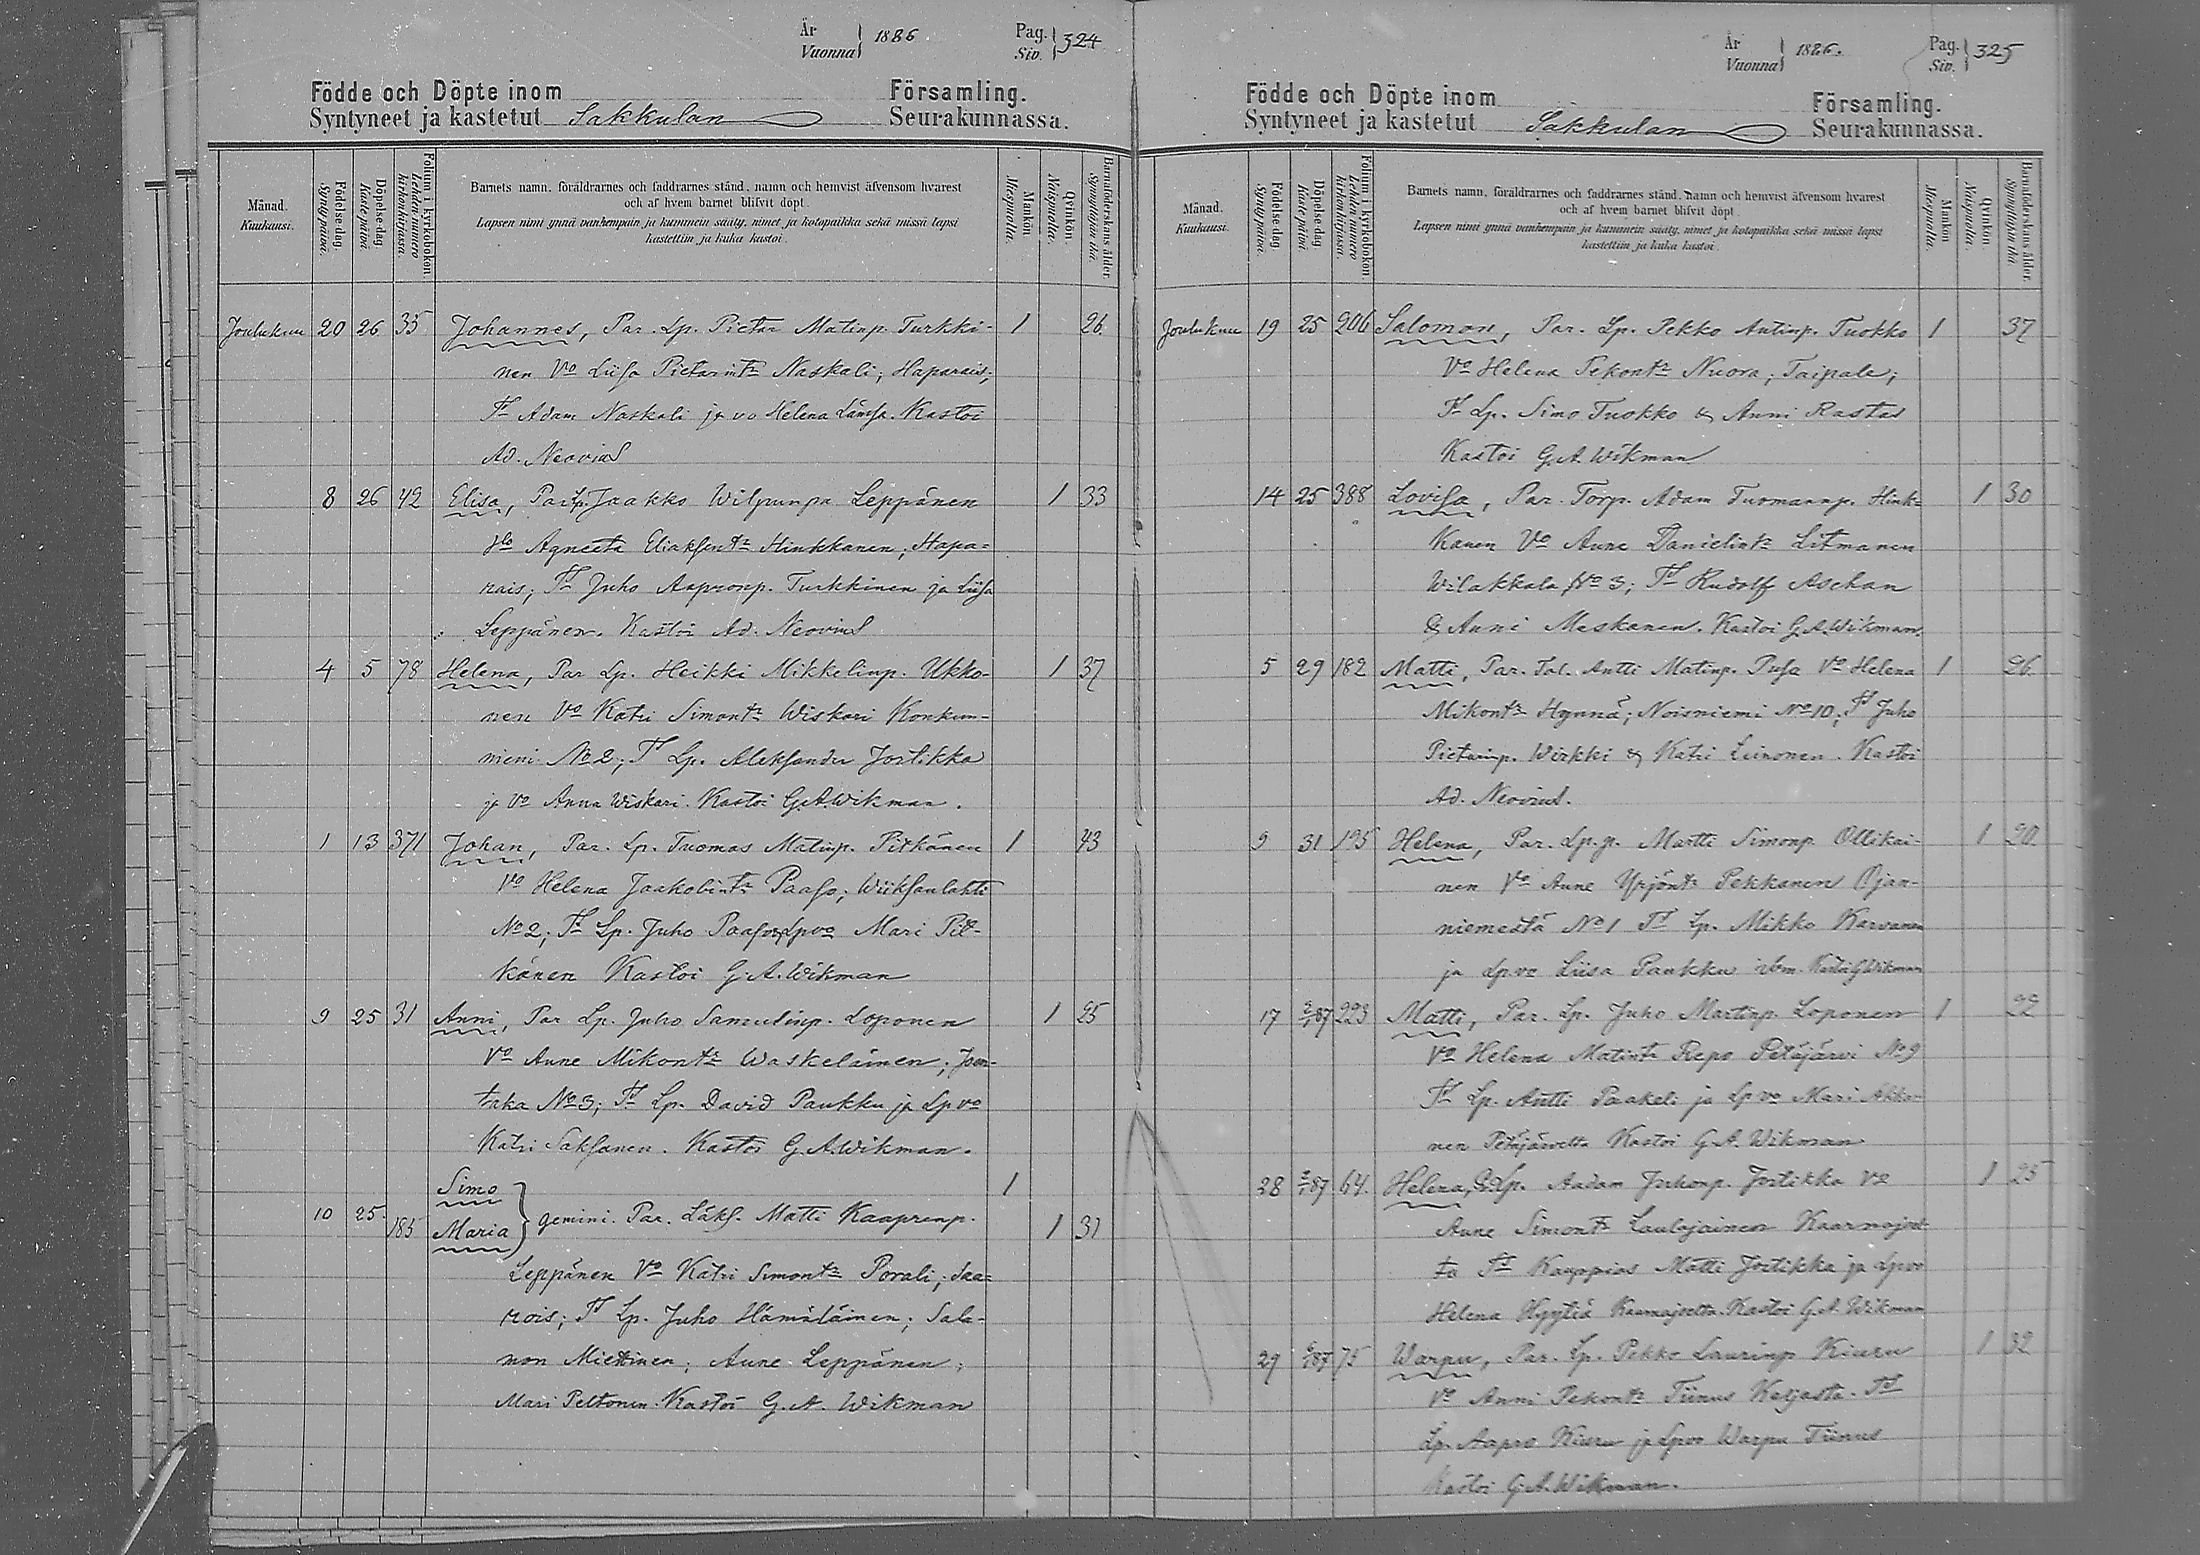 År
Vuonna 1886.
Pag.
Siv. 324
Födde och Döpte inom Församling.
Syntyneet ja kastetut Sakkulan Seurakunnassa.
Månad. Kuukausi.
Födelse-dag Syntypäivä.
Döpelse-dag Kastepäivä
Folium i kyrkobokon Lehden numero kirkonkirjassa.
Barnets namn, föräldrarnes och faddrarnes stånd, namn och hemvist äfvensom hvarest
och af hvem barnet blifvit döpt.
Lapsen nimi ynnä vanhempain ja kummein sääty, nimet ja kotopaikka sekä missä lapsi
kastettiin ja kuka kastoi.
Mankön Miespuolia.
Qvinkön Naispuolia.
Barnaföderskans ålder Synnyttäjän ikä
Joulukuu 20 26 35 Johannes, Par. Lp. Pietar Matinp. Turkki- 1 26.
nen Vo Liisa Pietarintr Naskali; Haparais;
Td Adam Naskali ja vo Helena Lämsä. Kastoi
Ad. Neovius
8 26 42 Elisa, Par. Lp. Jaakko Wilpunpa Leppänen 1 33
Vo Agneeta Eliaksentr Hinkkanen; Hapa=
rais; Td Juho Aapronp. Turkkinen ja Liisa
Leppänen. Kastoi Ad. Neovius
4 5 78 Helena, Par Lp. Heikki Mikkelinp. Ukko- 1 37
nen Vo Katri Simontr Wiskari Konkun-
niemi No 2; Td Lp. Aleksander Jortikka
ja Vo Anna Wiskari. Kastoi G.A Wikman.
1 13 371 Johan, Par. Lp. Tuomas Matinp. Pitkänen 1 43
Vo Helena Jaakobintr Paaso; Wiiksanlahti
No 2; Td Lp. Juho Paaso & Lpvo Mari Pit-
känen Kastoi G.A. Wikman
9 25 31 Anni, Par Lp. Juho Samulinp. Loponen 1 25
Vo Aune Mikontr Waskelainen; Joen-
taka No 3; Td Lp. David Paukku ja Lp vo
Katri Saksanen. Kastoi G.A. Wikman.
Simo 1
10 25. 185 Maria gemini. Par. Läks. Matti Kaaprenp. 1 31
Leppänen Vo Katri Simontr Porali; Saa=
rois; Td Lp. Juho Hämäläinen; Sala-
mon Miettinen; Aune Leppänen;
Mari Peltonen. Kastoi G. A. Wikman
År
Vuonna 1886.
Pag.
Siv. 325
Födde och Döpte inom Församling.
Syntyneet ja kastetut Sakkulan Seurakunnassa.
Månad. Kuukausi.
Födelse-dag Syntypäivä.
Döpelse-dag Kastepäivä
Folium i kyrkobokon Lehden numero kirkonkirjassa.
Barnets namn, föräldrarnes och faddrarnes stånd, namn och hemvist äfvensom hvarest
och af hvem barnet blifvit döpt.
Lapsen nimi ynnä vanhempain ja kummein sääty, nimet ja kotopaikka sekä missä lapsi
kastettiin ja kuka kastoi.
Mankön Miespuolia.
Qvinkön Naispuolia.
Barnaföderskans ålder. Synnyttäjän ikä
Joulukuu 19 25 206 Salomon, Par. Lp. Pekko Antinp. Tuokko 1 37
Vo Helena Pekontr Nuora; Taipale;
Td Lp. Simo Tuokko & Anni Rastas
Kastoi G.A. Wikman
14 25 388 Lovisa, Par. Torp. Adam Tuomaanp. Hink= 1 30
kanen Vo Aune Danielintr Litmanen
Wilakkala No 3; Td Rudolf Aschan
& Anni Meskanen. Kastoi G.A. Wikman.
5 29 182 Matti, Par. Tal. Antti Matinp. Pusa Vo Helena 1 26.
Mikontr Hynnä; Noisniemi No 10; Td Juho
Pietarinp. Wirkki & Katri Leinonen. Kastoi
Ad. Neovius.
9 31 195 Helena, Par. Lp.p. Martti Simonp. Ollikai- 1 20.
nen Vo Aune Yrjöntr Pekkanen Ojan-
niemestä No 1 Td Lp. Mikko Karvanen
ja Lp vo Liisa Paukku ibm. Kastoi G Wikman
17 2/1 87 223 Matti, Par. Lp. Juho Martinp. Loponen 1 22
Vo Helena Matintr Repo Petäjärvi No 9
Td Lp. Antti Paakeli ja Lp vo Mari Ukko-
nen Petäjärveltä Kastoi G.A. Wikman
28 2/1 87 64. Helena, Lp. Aadam Juhonp. Jortikka Vo 1 25
Aune Simontr Laulajainen Kaarnajoel-
ta Td Kauppias Matti Jortikka ja Lpvo
Helena Hyytiä Kaarnajoelta. Kastoi G.A. Wikman
29 6/1 87 75 Warpu, Par. Lp. Pekko Laurinp Kiuru 1 32
Vo Anni Pekontr Tiinus Keljasta. Td
Lp. Aapro Kiuru ja Lpvo Warpu Tiinus
Kastoi G.A. Wikman.